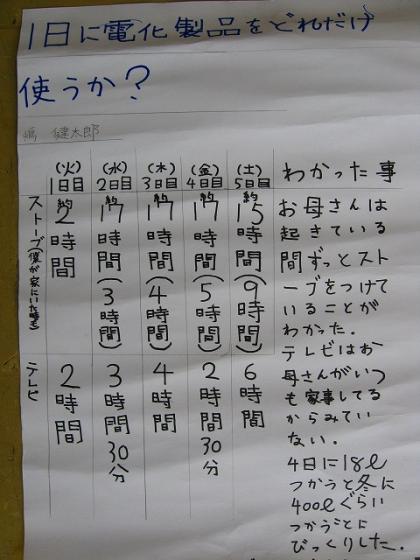 1日に電化製品をどれだけ
使うか?
嶋 健太郎
(火) (水) (木) (金) (土)
1日目 2日目 3日目 4日目 5日目
わかった事
ストーブ(僕が家にいた時も)
約2時間
約17時間(3時間)
約17時間(4時間)
約17時間(5時間)
約15時間(9時間)
テレビ
2時間
3時間30分
4時間
2時間30分
6時間
お母さんは
起きている
間ずっとスト
ーブをつけて
いることが
わかった.
テレビはお
母さんがいつ
も家事してる
からみてい
ない.
4日に18ℓ
つかうと冬に
400ℓぐらい
つかうことに
びっくりした.